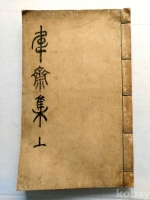 韋齋集 上
kobay